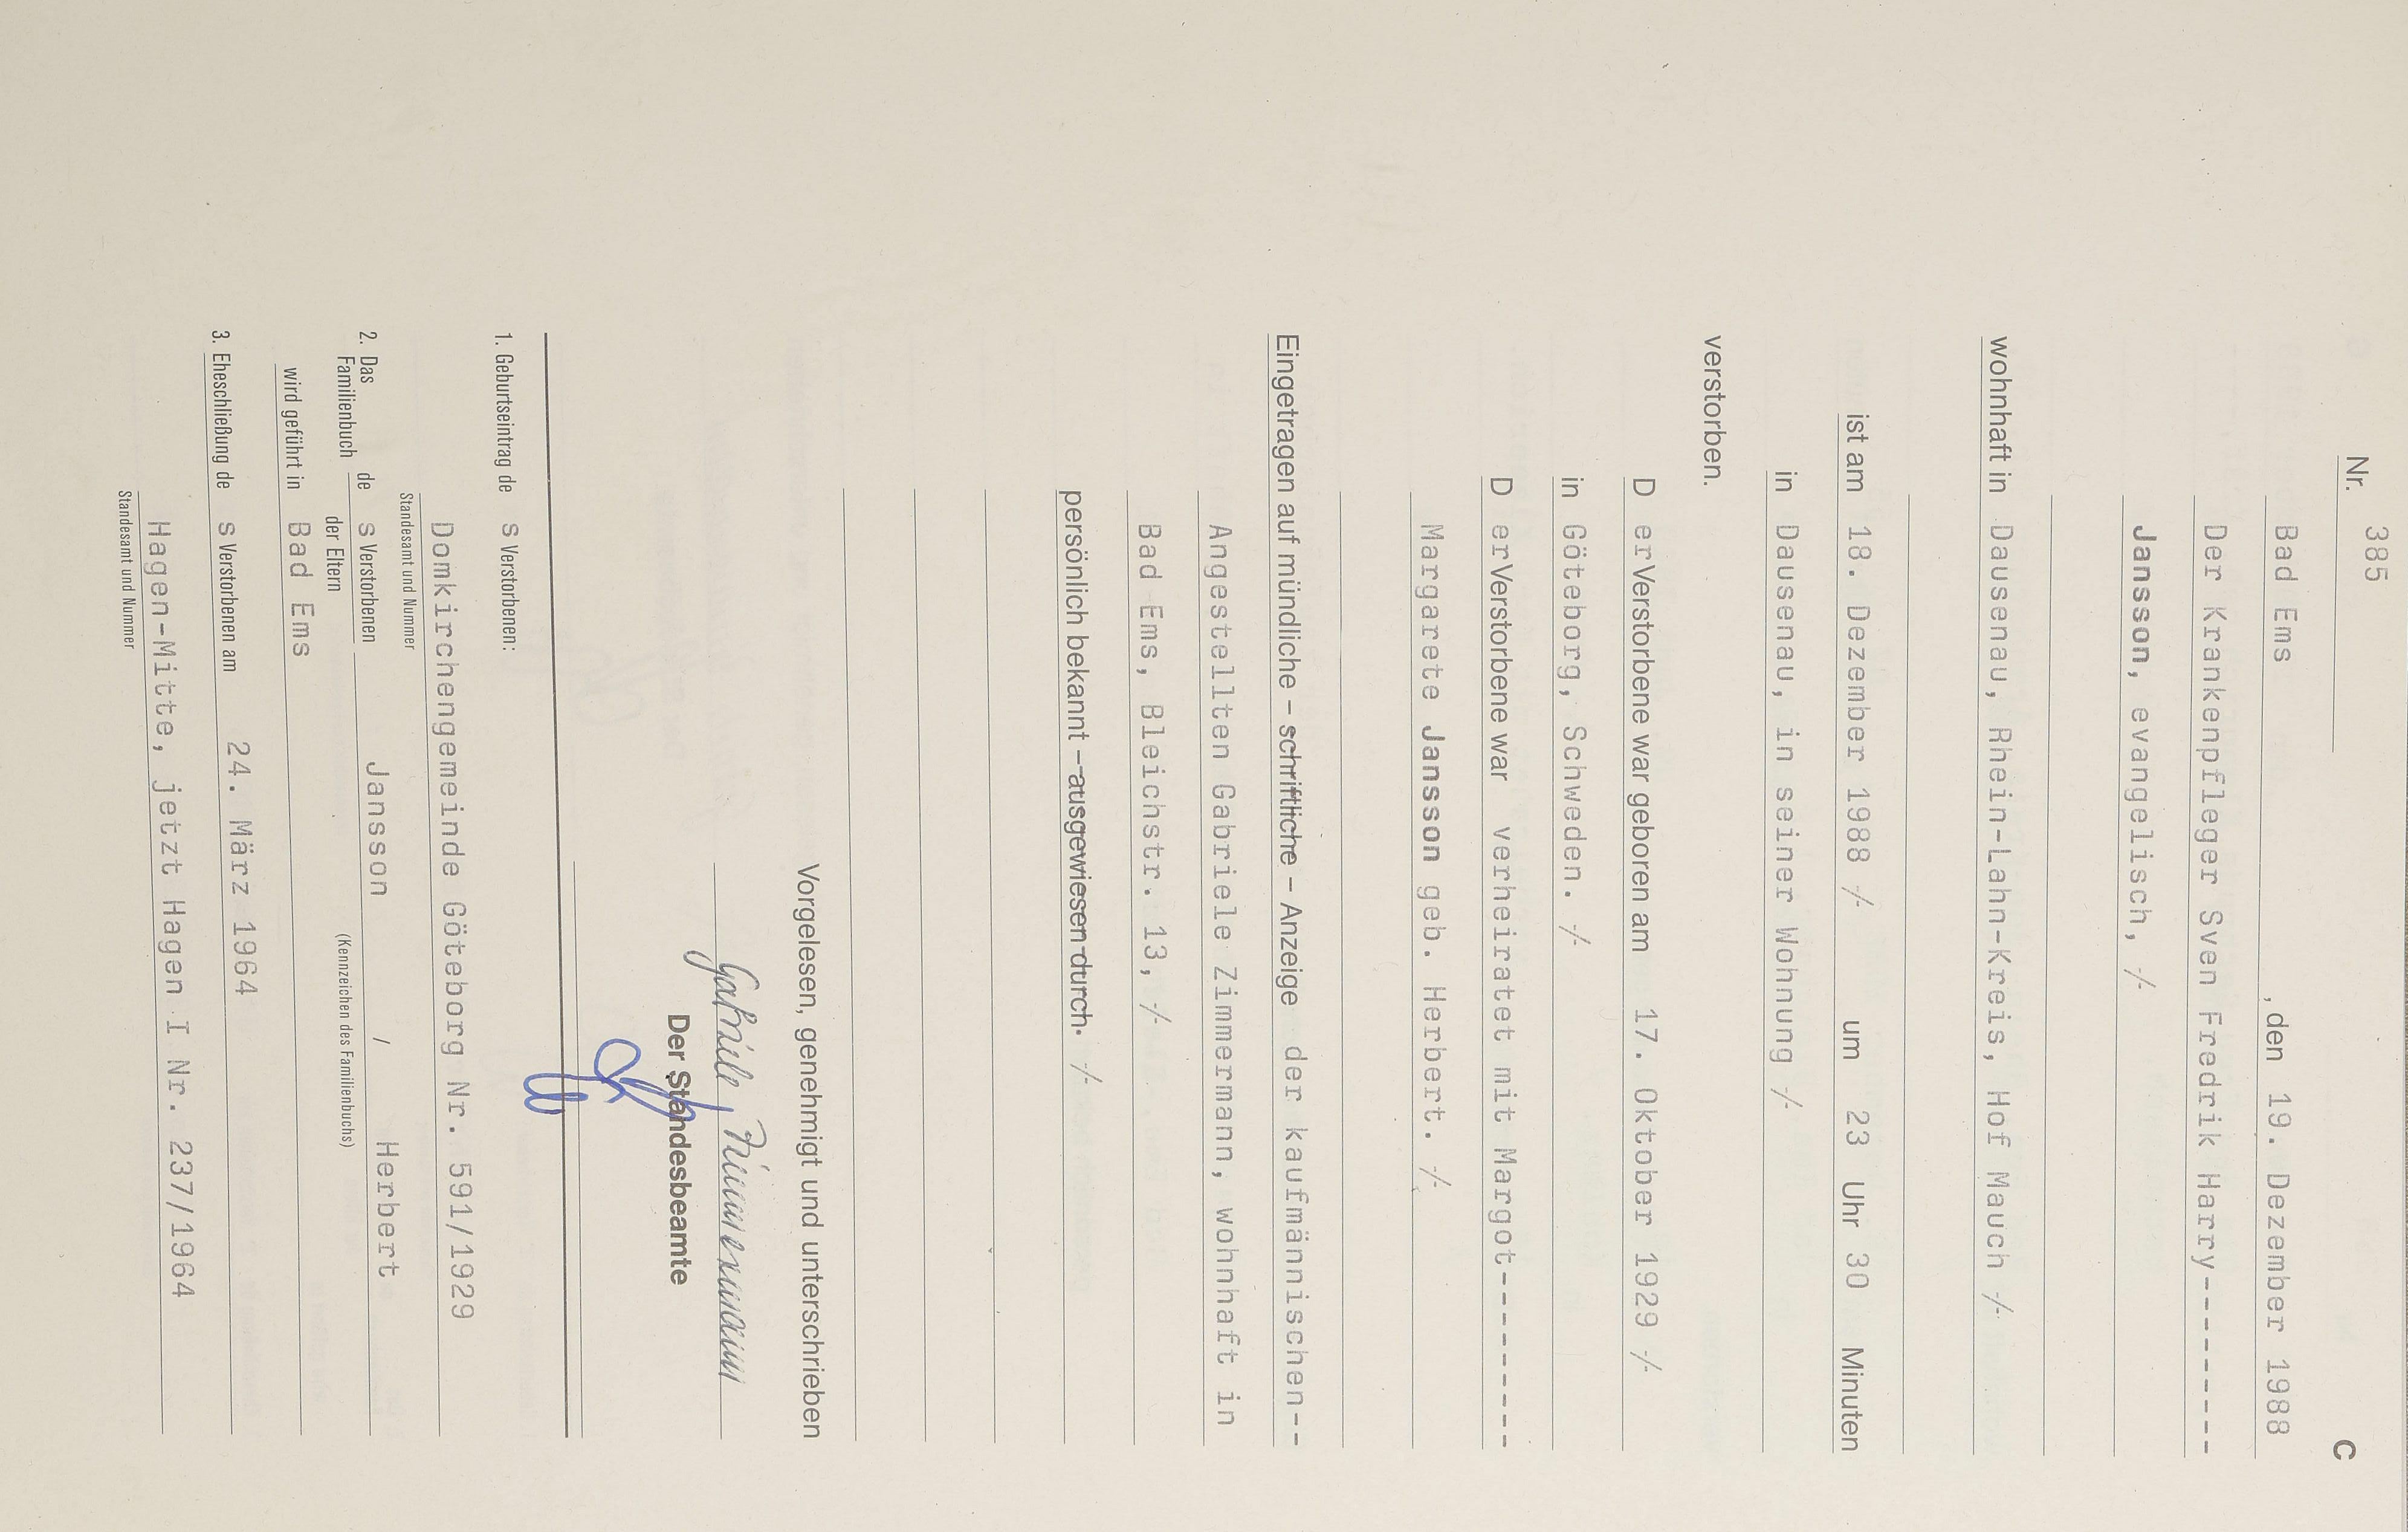 C
Nr. 385
Bad Ems , den 19. Dezember 1988
Der Krankenpfleger Sven Fredrik Harry---------
Jansson, evangelisch, -/-
wohnhaft in Dausenau, Rhein-Lahn-Kreis, Hof Mauch -/-
ist am 18. Dezember 1988 -/- um 23 Uhr 30 Minuten
in Dausenau, in seiner Wohnung -/-
verstorben.
D er Verstorbene war geboren am 17. Oktober 1929 -/-
in Göteborg, Schweden. -/-
D er Verstorbene war verheiratet mit Margot---------
Margarete Jansson geb. Herbert. -/-
Eingetragen auf mündliche – schriftliche – Anzeige der kaufmännischen--
Angestellten Gabriele Zimmermann, wohnhaft in
Bad Ems, Bleichstr. 13, -/-
persönlich bekannt – ausgewiesen durch. -/-
Vorgelesen, genehmigt und unterschrieben
Gabriele Zimmermann
Der Standesbeamte
1. Geburtseintrag de s Verstorbenen:
Domkirchengemeinde Göteborg Nr. 591/1929
Standesamt und Nummer
2. Das Familienbuch de s Verstorbenen Jansson / Herbert
der Eltern (Kennzeichen des Familienbuchs)
wird geführt in Bad Ems
3. Eheschließung de s Verstorbenen am 24. März 1964
Hagen-Mitte, jetzt Hagen I Nr. 237/1964
Standesamt und Nummer